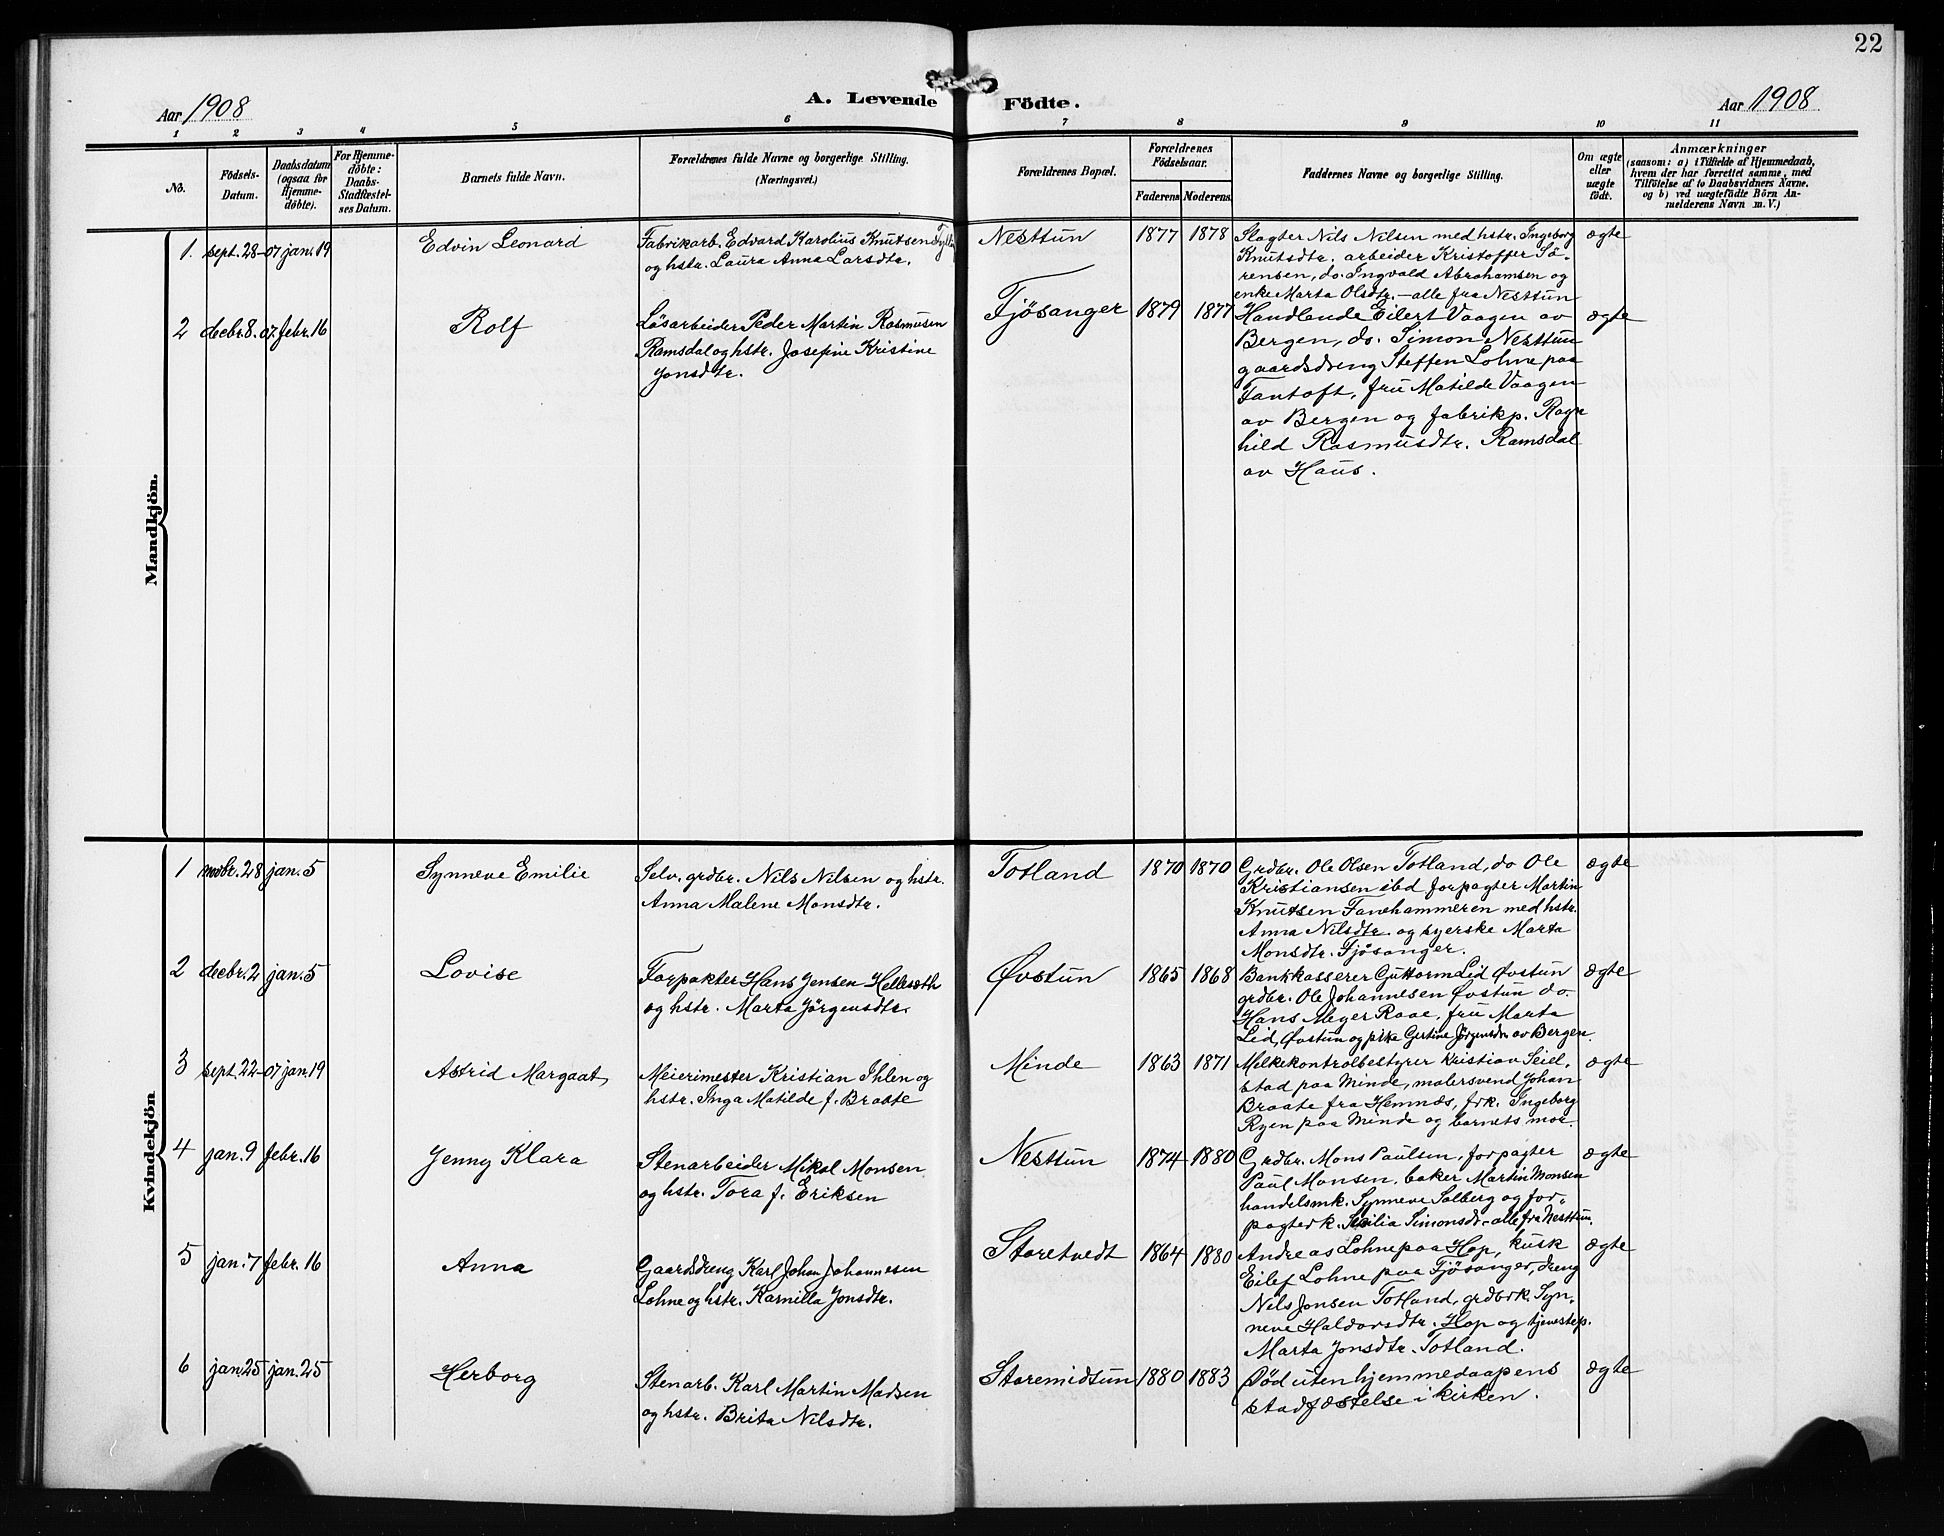 22
Aar 1908
A. Levende
Födte.
Aar 1908
1 2 3 4 5 6 7 8 9 10 11
No.
Födsels-
Datum.
Daabsdatum
(ogsaa for
Hjemme-
döbte).
For Hjemme-
döbte:
Daabs-
Stadfæstel-
ses Datum.
Barnets fulde Navn.
Forældrenes fulde Navne og borgerlige Stilling.
(Næringsvei.)
Forældrenes Bopæl.
Forældrenes
Födselsaar.
Faderens Moderens
Faddernes Navne og borgerlige Stilling.
Om ægte
eller
uægte
födt.
Anmærkninger
(saasom: a) i Tilfælde af Hjemmedaab,
hvem der har forrettet samme, med
Tilföielse af to Daabsvidners Navne.
og b) ved uægtefödte Börn An-
melderens Navn m. V.)
Mandkjön.
1. sept. 28-07 jan. 19
Edvin Leonard
Fabrikarb. Edvard Karolius Knutsen
og hstr. Laura Anna Larsdtr.
Nesttun
1877 1878
Slagter Nils Nilsen med hstr. Ingeborg
Knutsdtr. arbeider Kristoffer Sö-
rensen, do. Ingvald Abrahamsen og
enke Marta Olsdtr. - alle fra Nesttun
ægte
2 decbr. 8. 07 febr. 16
Rolf
Løsarbeider Peder Martin Rasmusen
Ramsdal og hstr. Josefine Kristine
Jonsdtr.
Fjösanger
1879 1877
Handlende Eilert Vaagen av
Bergen, do. Simon Nesttun
gaardsdreng Steffen Lohne paa
Fantoft, fru Matilde Vaagen
av Bergen og fabrikp. Ragn
hild Rasmusdtr. Ramsdal
av Haus.
ægte
Kvindekjön
1 novbr. 28 jan. 5
Synneve Emilie
Selv. grdbr. Nils Nilsen og hstr.
Anna Malene Monsdtr.
Totland
1870 1870
Grdbr. Ole Olsen Totland, do Ole
Kristiansen ibd, forpagter Martin
Knutsen Fanehammeren med hstr.
Anna Nilsdtr. og syerske Marta
Monsdtr. Fjösanger.
ægte
2 decbr. 2 jan. 5
Lovise
Forpakter Hans Jensen Hellesøth
og hstr. Marta Jörgensdtr.
Øvstun
1865 1868
Bankkasserer Guttorm Lid Øvstun
grdbr. Ole Johannesen Øvstun do.
Hans Meyer Raae, fru Marta
Lid, Øvstun og pike Gertine Jörgensdtr av Bergen.
ægte
3 sept. 22-07 jan. 19
Astrid Margaat
Meierimester Kristian Ihlen og
hstr. Inga Matilde f. Braate
Minde
1863 1871
Melkekontrolbestyrer Kristian Seiel-
stad paa Minde, malersvend Johan
Braate fra Hemnæs, frk. Ingeborg
Ryen paa Minde og barnets mor.
ægte
4 jan. 9 febr. 16
Jenny Klara
Stenarbeider Mikal Monsen
og hstr. Tora f. Eriksen
Nesttun
1874 1880
Grdbr. Mons Paulsen, forpagter
Paul Monsen, baker Martin Monsen
handelsmk. Synneve Solberg og for-
pagterk. Silia Simonsdr - alle fra Nesttun.
ægte
5 jan. 7 febr. 16
Anna
Gaardsdreng Karl Johan Johannesen
Lohne og hstr. Kamilla Jonsdtr.
Storetvedt
1864 1880
Andreas Lohne paa Hop, kusk
Eilef Lohne paa Fjösanger, dreng
Nils Jonsen Totland, grdbrk. Syn-
neve Haldorsdtr. Hop og tjenestep.
Marta Jonsdtr. Totland.
ægte
6 jan. 25 jan. 25
Herborg
Stenarb. Karl Martin Madsen
og hstr. Brita Nilsdtr.
Storemidtun
1880 1883
Död uten hjemmedaapens
stadfæstelse i kirken.
ægte